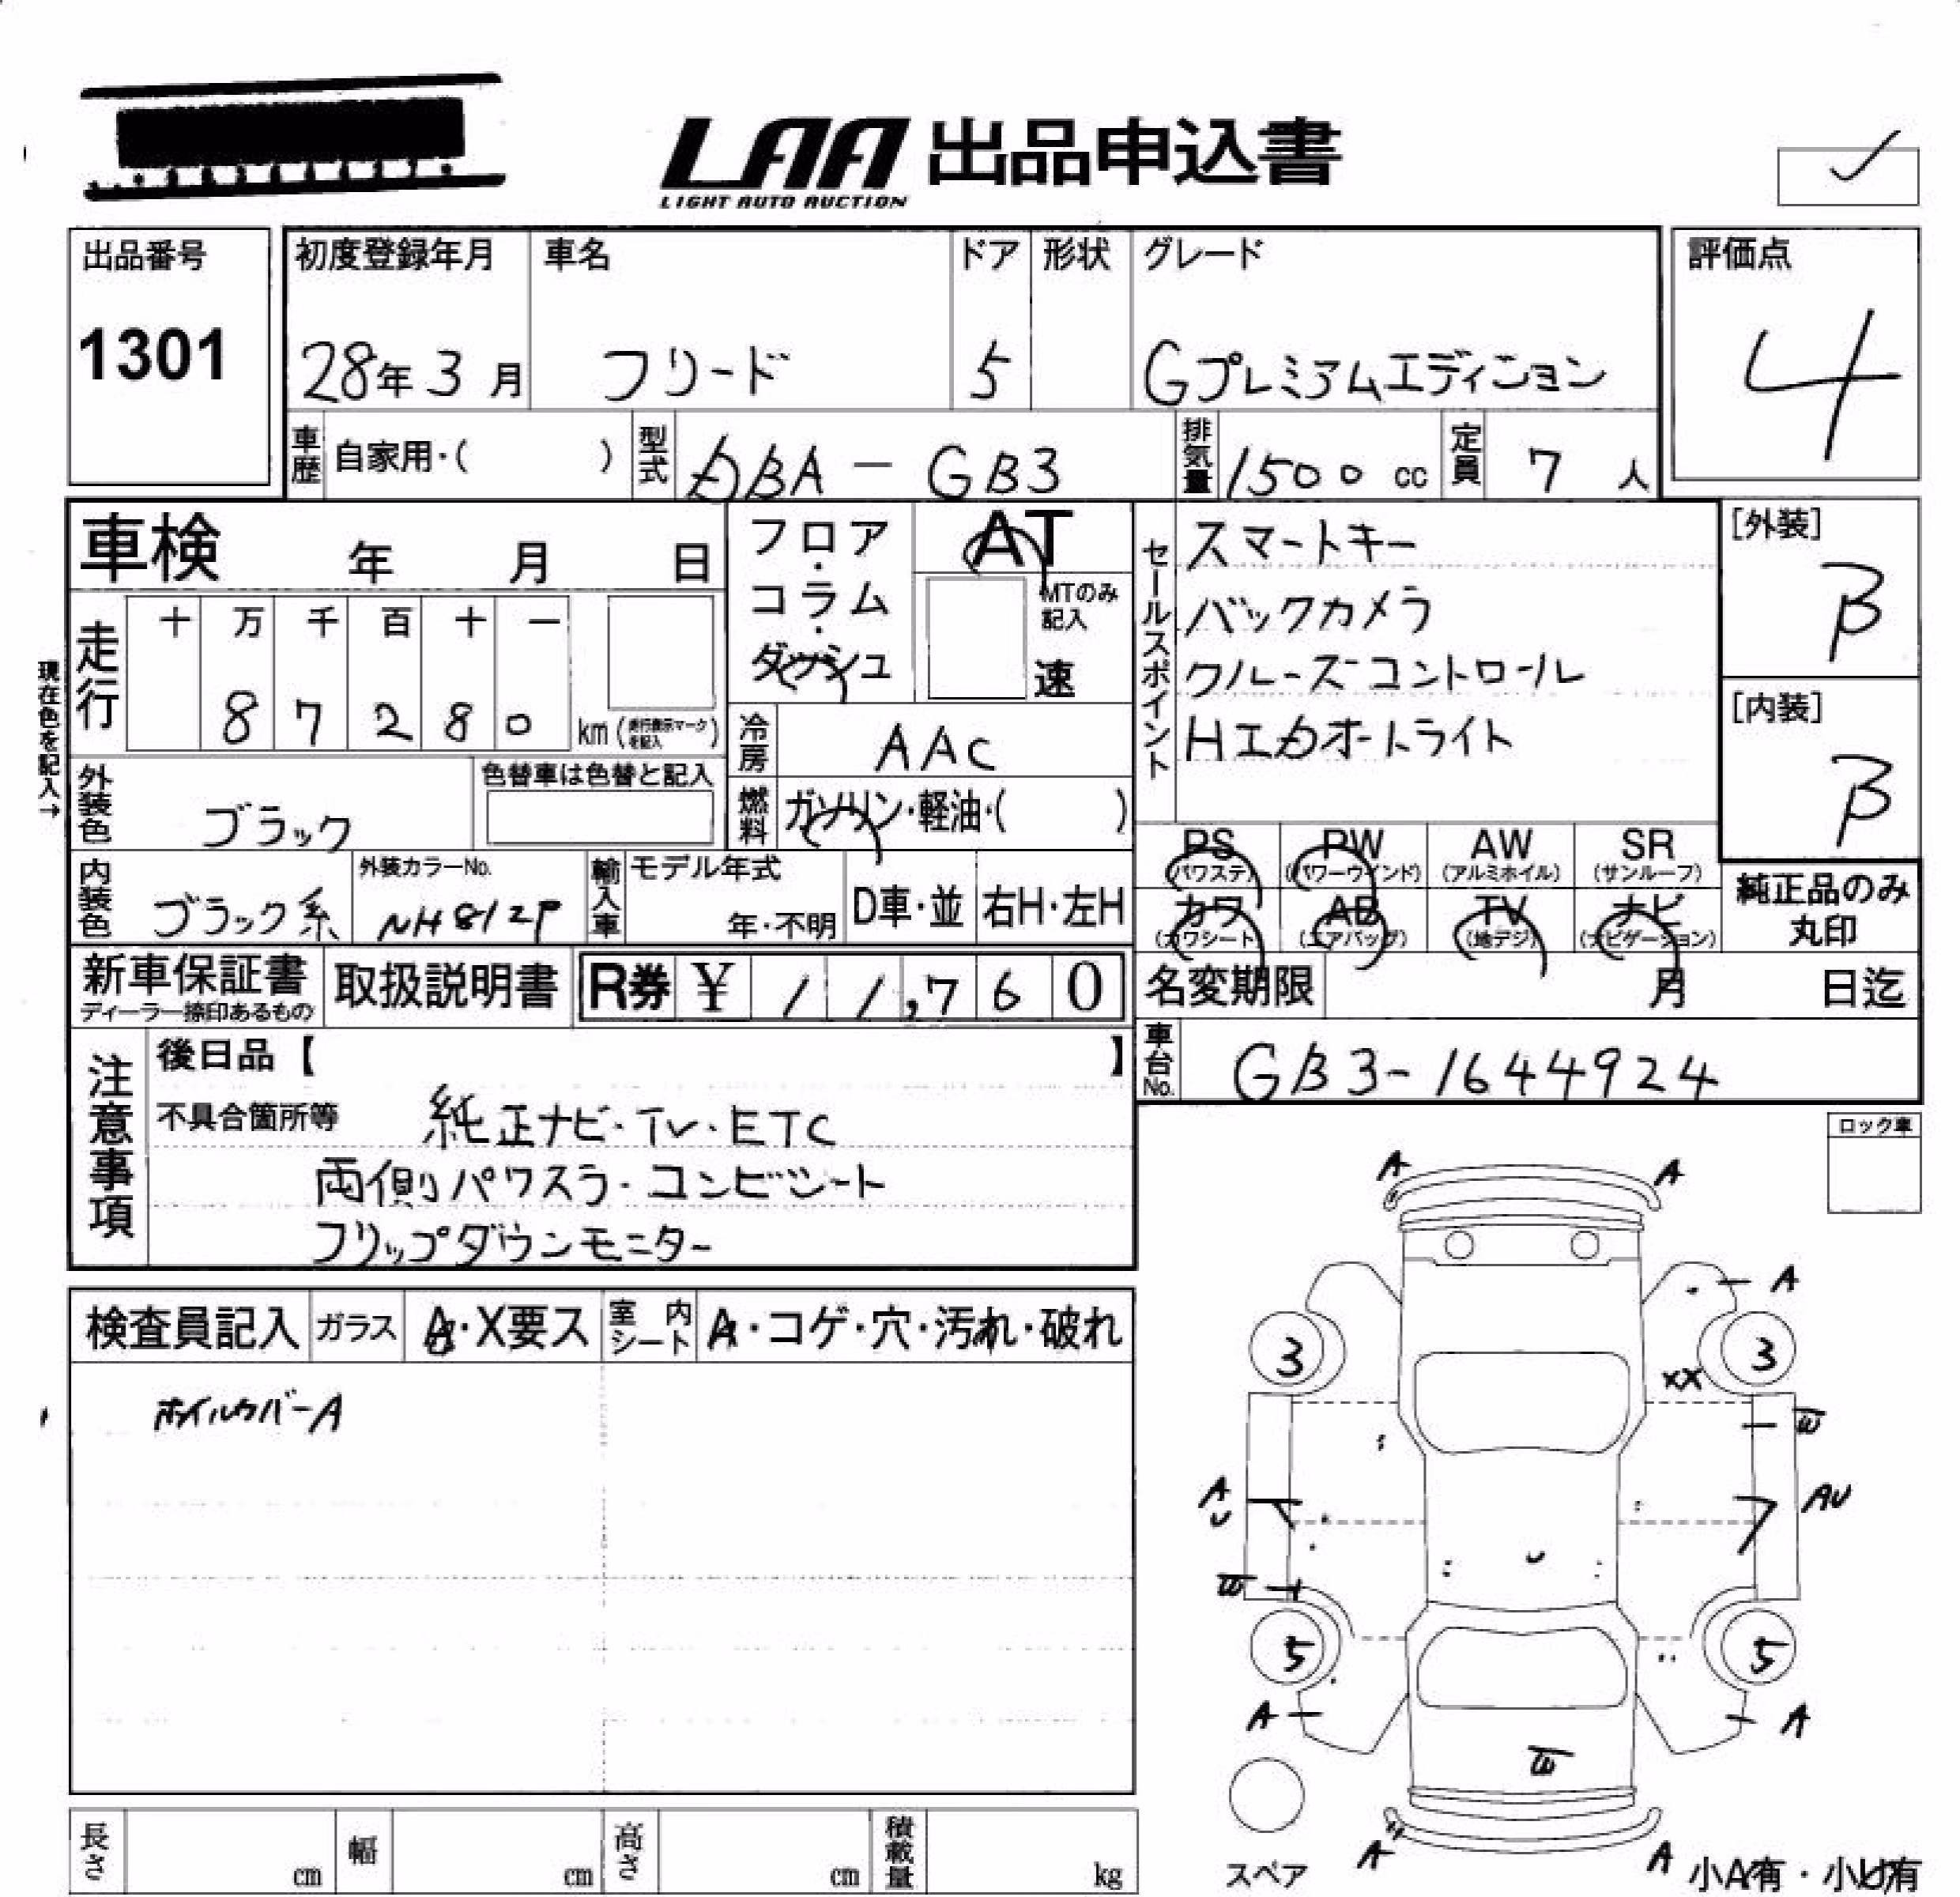 LAA 出品申込書
LIGHT AUTO AUCTION
出品番号
1301
初度登録年月
28年3月
車名
フリード
ドア
5
形状
グレード
Gプレミアムエディション
評価点
4
車歴 自家用・( )
型式 DBA-GB3
排気量 1500 cc
定員 7 人
車検 年 月 日
フロア・コラム・ダッシュ
AT
MTのみ記入
速
セールスポイント
スマートキー
バックカメラ
クルーズコントロール
HIDオートライト
[外装]
B
[内装]
B
現在色を記入→
走行
十 万 千 百 十 一
8 7 2 8 0 km(走行表示マークを記入)
冷房 AAC
燃料 ガソリン・軽油・( )
外装色 ブラック
色替車は色替と記入
内装色 ブラック系
外装カラーNo.
NH812P
輸入車
モデル年式
年・不明
D車・並
右H・左H
PS (パワステ)
PW (パワーウインド)
AW (アルミホイル)
SR (サンルーフ)
カワ (カワシート)
AB (エアバッグ)
TV (地デジ)
ナビ (ナビゲーション)
純正品のみ
丸印
新車保証書
ディーラー捺印あるもの
取扱説明書
R券 ¥ 11,760
名変期限 月 日迄
車台No. GB3-1644924
注意事項
後日品【 】
不具合箇所等
純正ナビ・TV・ETC
両側パワスラ・コンビシート
フリップダウンモニター
ロック車
検査員記入
ガラス A・X要ス
室内シート A・コゲ・穴・汚れ・破れ
ホイルカバーA
A A
A
3 3
XX
W
A U
AU
W
U
5 5
A A
W
A A
スペア
小A有・小U有
長さ cm
幅 cm
高さ cm
積載量 kg